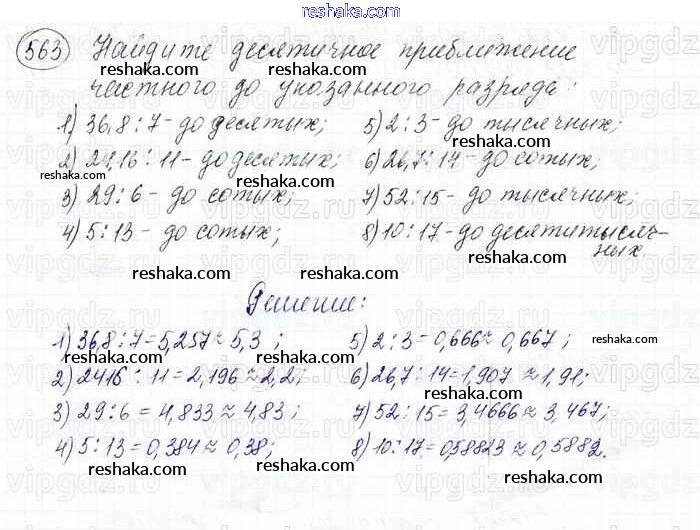 reshaka.com
563 Найдите десятичное приближение
reshaka.com reshaka.com
частного до указанного разряда:
1) 36,8 : 7 - до десятых; 5) 2 : 3 - до тысячных;
reshaka.com reshaka.com
2) 24,16 : 11 - до десятых; 6) 26,7 : 14 - до сотых;
reshaka.com
3) 29 : 6 - до сотых; 7) 52 : 15 - до тысячных;
reshaka.com
4) 5 : 13 - до сотых; 8) 10 : 17 - до десятитысяч-
ных.
reshaka.com reshaka.com
Решение:
1) 36,8 : 7 = 5,257 ≈ 5,3 ; 5) 2 : 3 = 0,666 ≈ 0,667 ;
reshaka.com reshaka.com reshaka.com
2) 2416 : 11 = 2,196 ≈ 2,2; 6) 26,7 : 14 = 1,907 ≈ 1,91;
reshaka.com reshaka.com
3) 29 : 6 = 4,833 ≈ 4,83 ; 7) 52 : 15 = 3,4666 ≈ 3,467;
reshaka.com reshaka.com
4) 5 : 13 = 0,384 ≈ 0,38; 8) 10 : 17 = 0,58823 ≈ 0,5882.
reshaka.com reshaka.com
reshaka.com